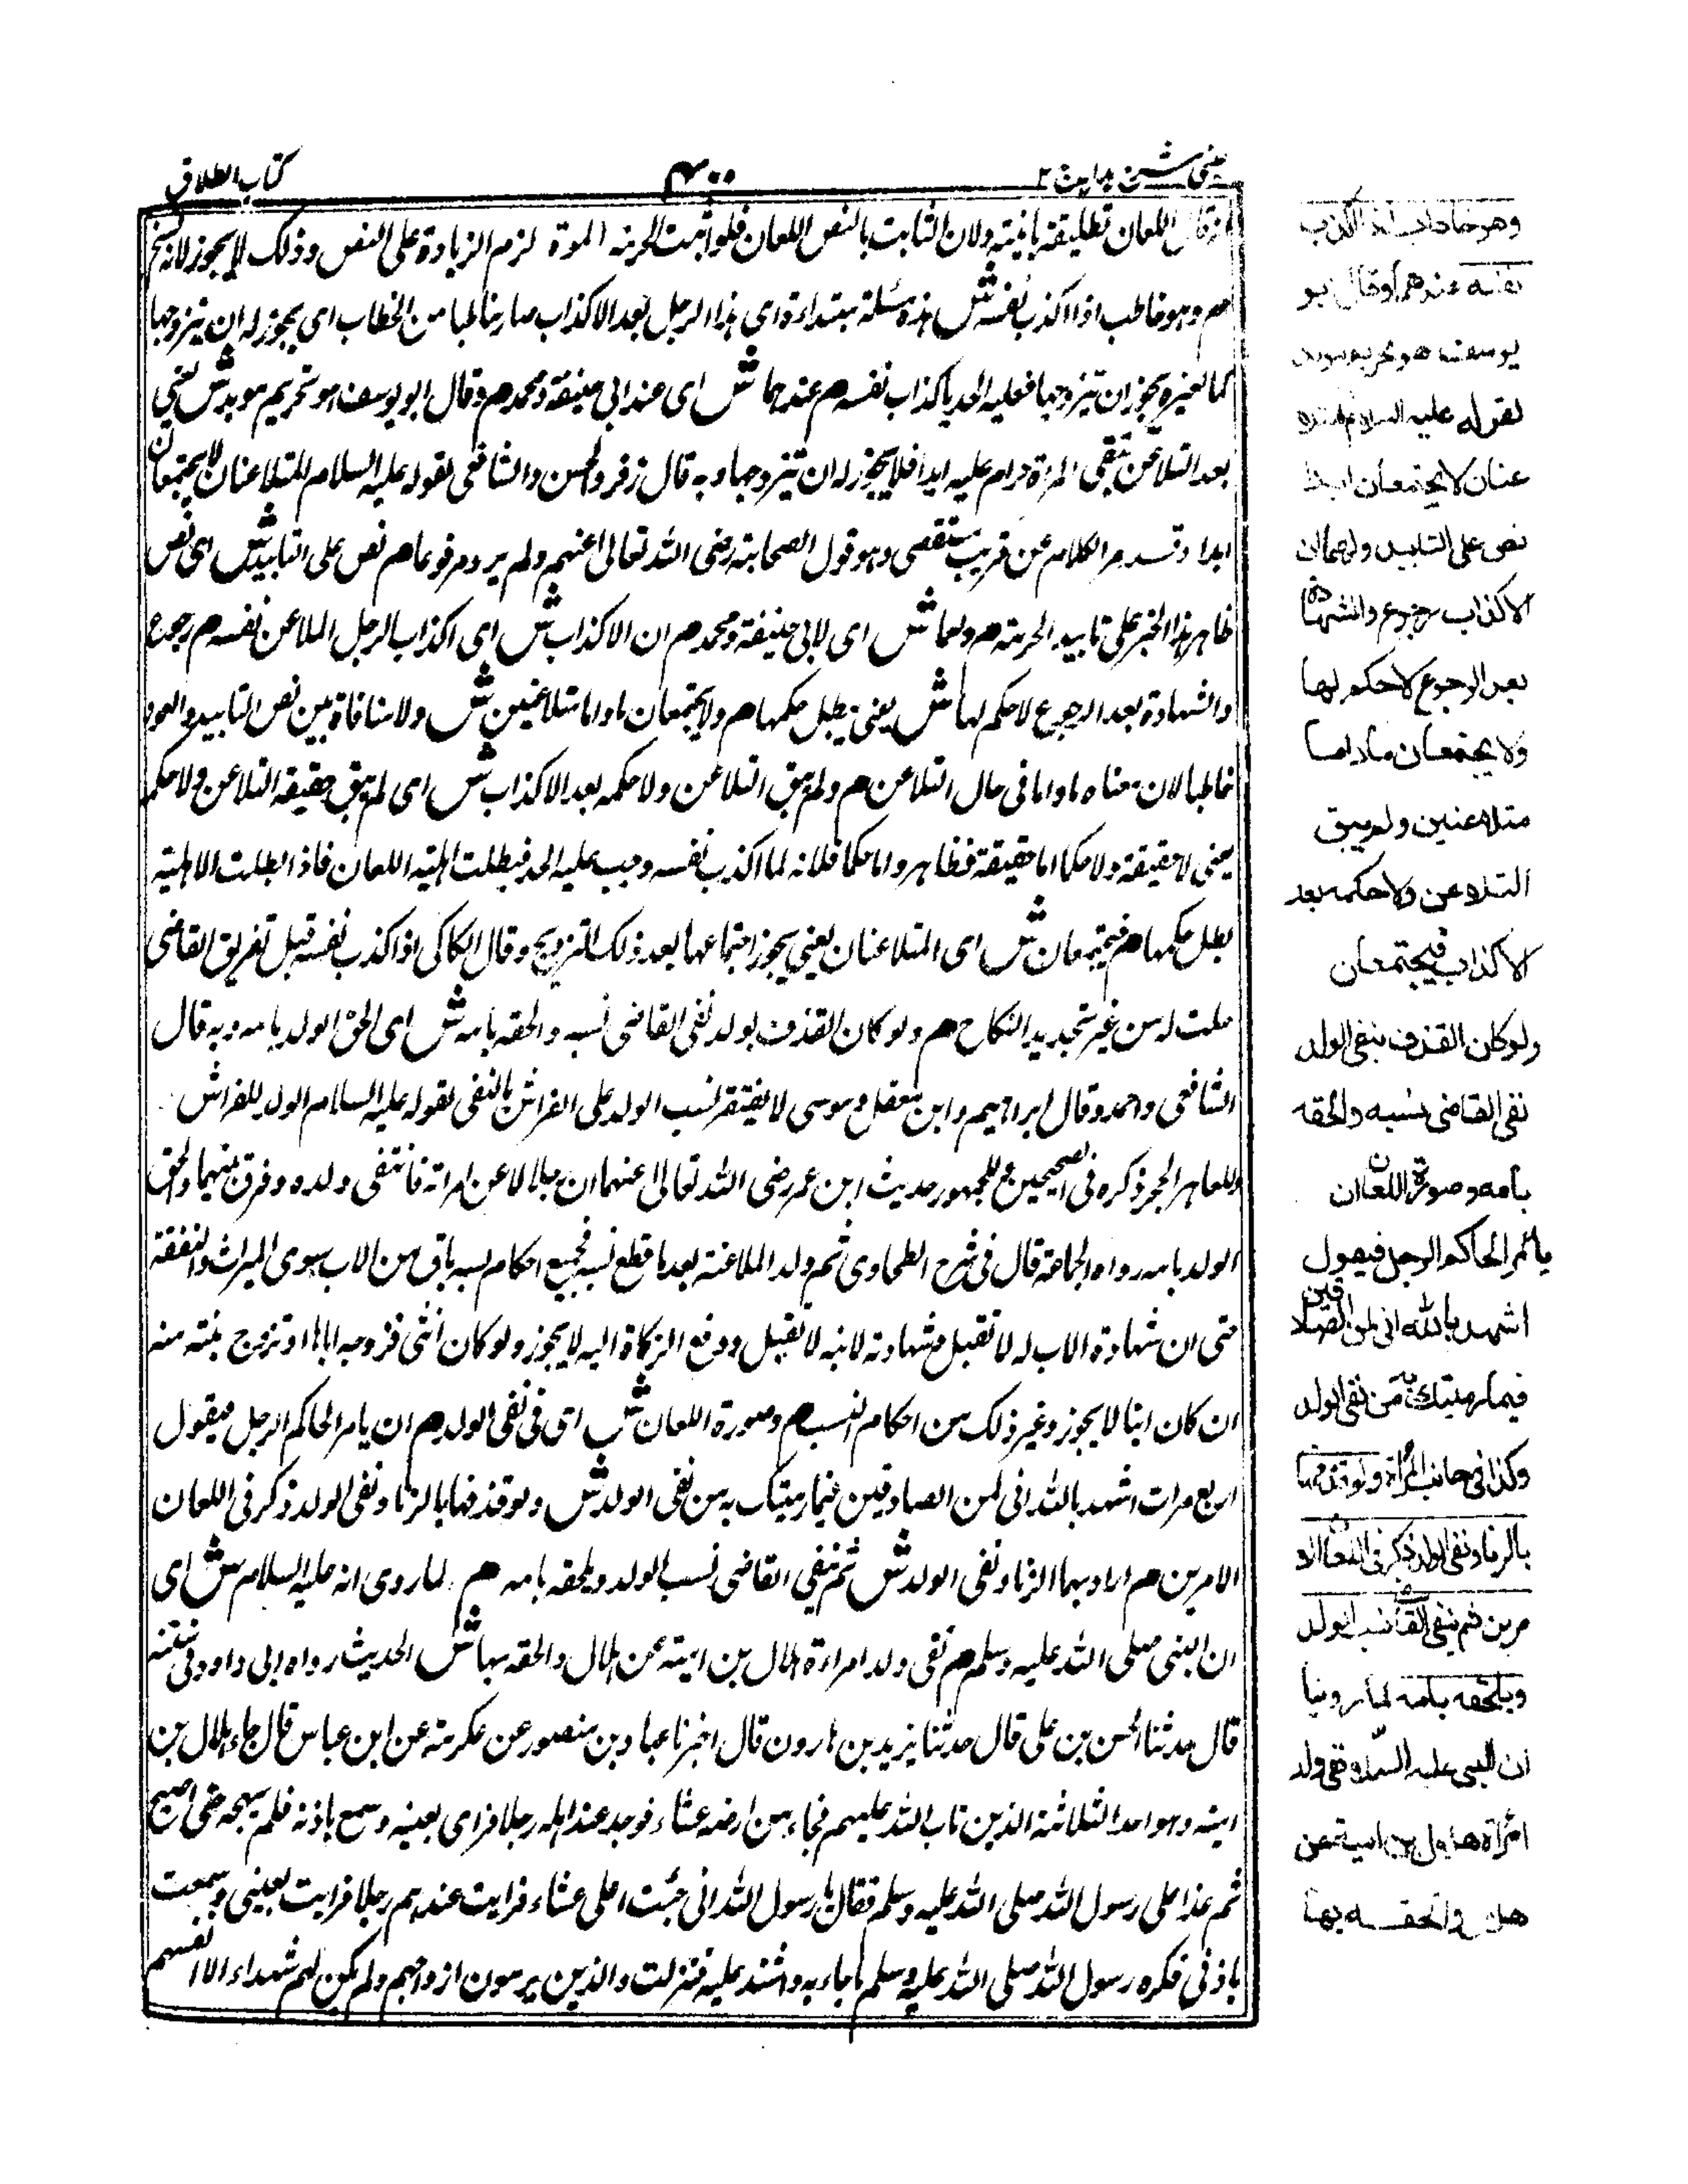 عینی شرح هدایه ج ۲
۴۰۰
كتاب الطلاق
قال اللعان تطليقة بائنة ولان الثابت بالنص اللعان فلو اثبت الحرمة المؤبدة لزم الزيادة على النص وذلك لا يجوز لانه نسخ
م وهو خاطب اذا اكذب نفسه ش هذه مسئلة مبتدأة اى هذا الرجل بعد الاكذاب صار خاطبا من الخطاب اى يجوز له ان يتزوجها
كما لغيره يجوز ان يتزوجها فعليه الحد باكذاب نفسه م عندهما ش اى عند ابى حنيفة ومحمد م وقال ابو يوسف هو تحريم موبد ش يعنى
بعد التلاعن تبقى المراة حرام عليه ابدا فلا يجوز له ان يتزوجها وبه قال زفر والحسن والشافعى لقوله عليه السلام المتلاعنان لا يجتمعان
ابدا وقد مر الكلام عن قريب مستقصى وهو قول الصحابة رضى الله تعالى عنهم ولم يرد مرفوعا م نص على التابيد ش اى نص
ظاهر هذا الخبر على تابيد الحرمة م ولهما ش اى لابى حنيفة ومحمد م ان الاكذاب ش اى اكذاب الرجل الملاعن نفسه م رجوع
والشهادة بعد الرجوع لا حكم لها ش يعنى يبطل حكمها م ولا يجتمعان ما داما متلاعنين ش ولا منافاة بين نص التابيد والعود
خاطبا لان معناه ما داما فى حال التلاعن م ولم يبق التلاعن ولا حكمه بعد الاكذاب ش اى لم يبق حقيقة التلاعن ولا حكمه
يعنى لا حقيقة ولا حكما اما حقيقة فظاهر واما حكما فلانه لما اكذب نفسه وجب عليه الحد فبطلت اهلية اللعان فاذا بطلت الاهلية
بطل حكمها م فيجتمعان ش اى المتلاعنان يعنى يجوز اجتماعهما بعد ذلك بالتزويج وقال الكاكى اذا اكذب نفسه قبل تفريق القاضى
حلت له من غير تجديد النكاح م ولو كان القذف بولد نفى القاضى نسبه والحقه بامه ش اى الحق الولد بامه وبه قال
الشافعى واحمد وقال ابراهيم وابن معقل وموسى لا يفتقر نسب الولد على الفراش بالنفى لقوله عليه السلام الولد للفراش
وللعاهر الحجر ذكره فى الصحيحين وللجمهور حديث ابن عمر رضى الله تعالى عنهما ان رجلا لاعن امراته فانتفى ولده وفرق بينهما والحق
الولد بامه رواه الجماعة قال فى شرح الطحاوى ثم ولد الملاعنة بعد ما قطع نسبه فجميع احكام نسبه باق من الاب سوى الميراث والنفقة
حتى ان شهادة الاب له لا تقبل وشهادته لابنه لا تقبل ودفع الزكاة اليه لا يجوز ولو كان انثى فزوجه اباها او تزوج بنته منه
ان كان ابنا لا يجوز وغير ذلك من احكام النسب م وصورة اللعان ش اى فى نفى الولد م ان يامر الحاكم الرجل فيقول
اربع مرات اشهد بالله انى لمن الصادقين فيما رميتك به من نفى الولد ش ولو قذفها بالزنا ونفى الولد ذكر فى اللعان
الامرين م اراد بهما الزنا ونفى الولد ش ثم ينفى القاضى نسب الولد ويلحقه بامه م لما روى انه عليه السلام ش اى
ان النبى صلى الله عليه وسلم م نفى ولد امراءة هلال بن امية عن هلال والحقه بها ش الحديث رواه ابى داود فى سننه
قال حدثنا الحسن بن على قال حدثنا يزيد بن هارون قال اخبرنا عباد بن منصور عن عكرمة عن ابن عباس قال جاء هلال بن
امية وهو احد الثلاثة الذين تاب الله عليهم فجاء من ارضه عشاء فوجد عند اهله رجلا فراى بعينه وسمع باذنه فلم يهجه حتى اصبح
ثم غدا على رسول الله صلى الله عليه وسلم فقال يا رسول الله انى جئت اهلى عشاء فرايت عندهم رجلا فرايت بعينى وسمعت
باذنى فكره رسول الله صلى الله عليه وسلم ما جاء به واشتد عليه فنزلت والذين يرمون ازواجهم ولم يكن لهم شهداء الا انفسهم
وهو خاطب اذا اكذب
نفسه عندهما وقال ابو
يوسف هو تحريم موبد
لقوله عليه السلام المتلا
عنان لا يجتمعان ابدا
نص على التابيد ولهما ان
الاكذاب رجوع والشهادة
بعد الرجوع لا حكم لها
ولا يجتمعان ما داما
متلاعنين ولم يبق
التلاعن ولا حكمه بعد
الاكذاب فيجتمعان
ولو كان القذف بنفى الولد
نفى القاضى نسبه والحقه
بامه وصورة اللعان ان
يأمر الحاكم الرجل فيقول
اشهد بالله انى لمن الصادقين
فيما رميتك به من نفى الولد
وكذا فى جانب المرأة ولو قذفها
بالزنا ونفى الولد ذكر فى اللعان الا
مرين ثم ينفى القاضى نسب الولد
ويلحقه بامه لما روينا
ان النبى عليه السلام نفى ولد
امرأة هلال بن امية عن
هلال والحقه بها